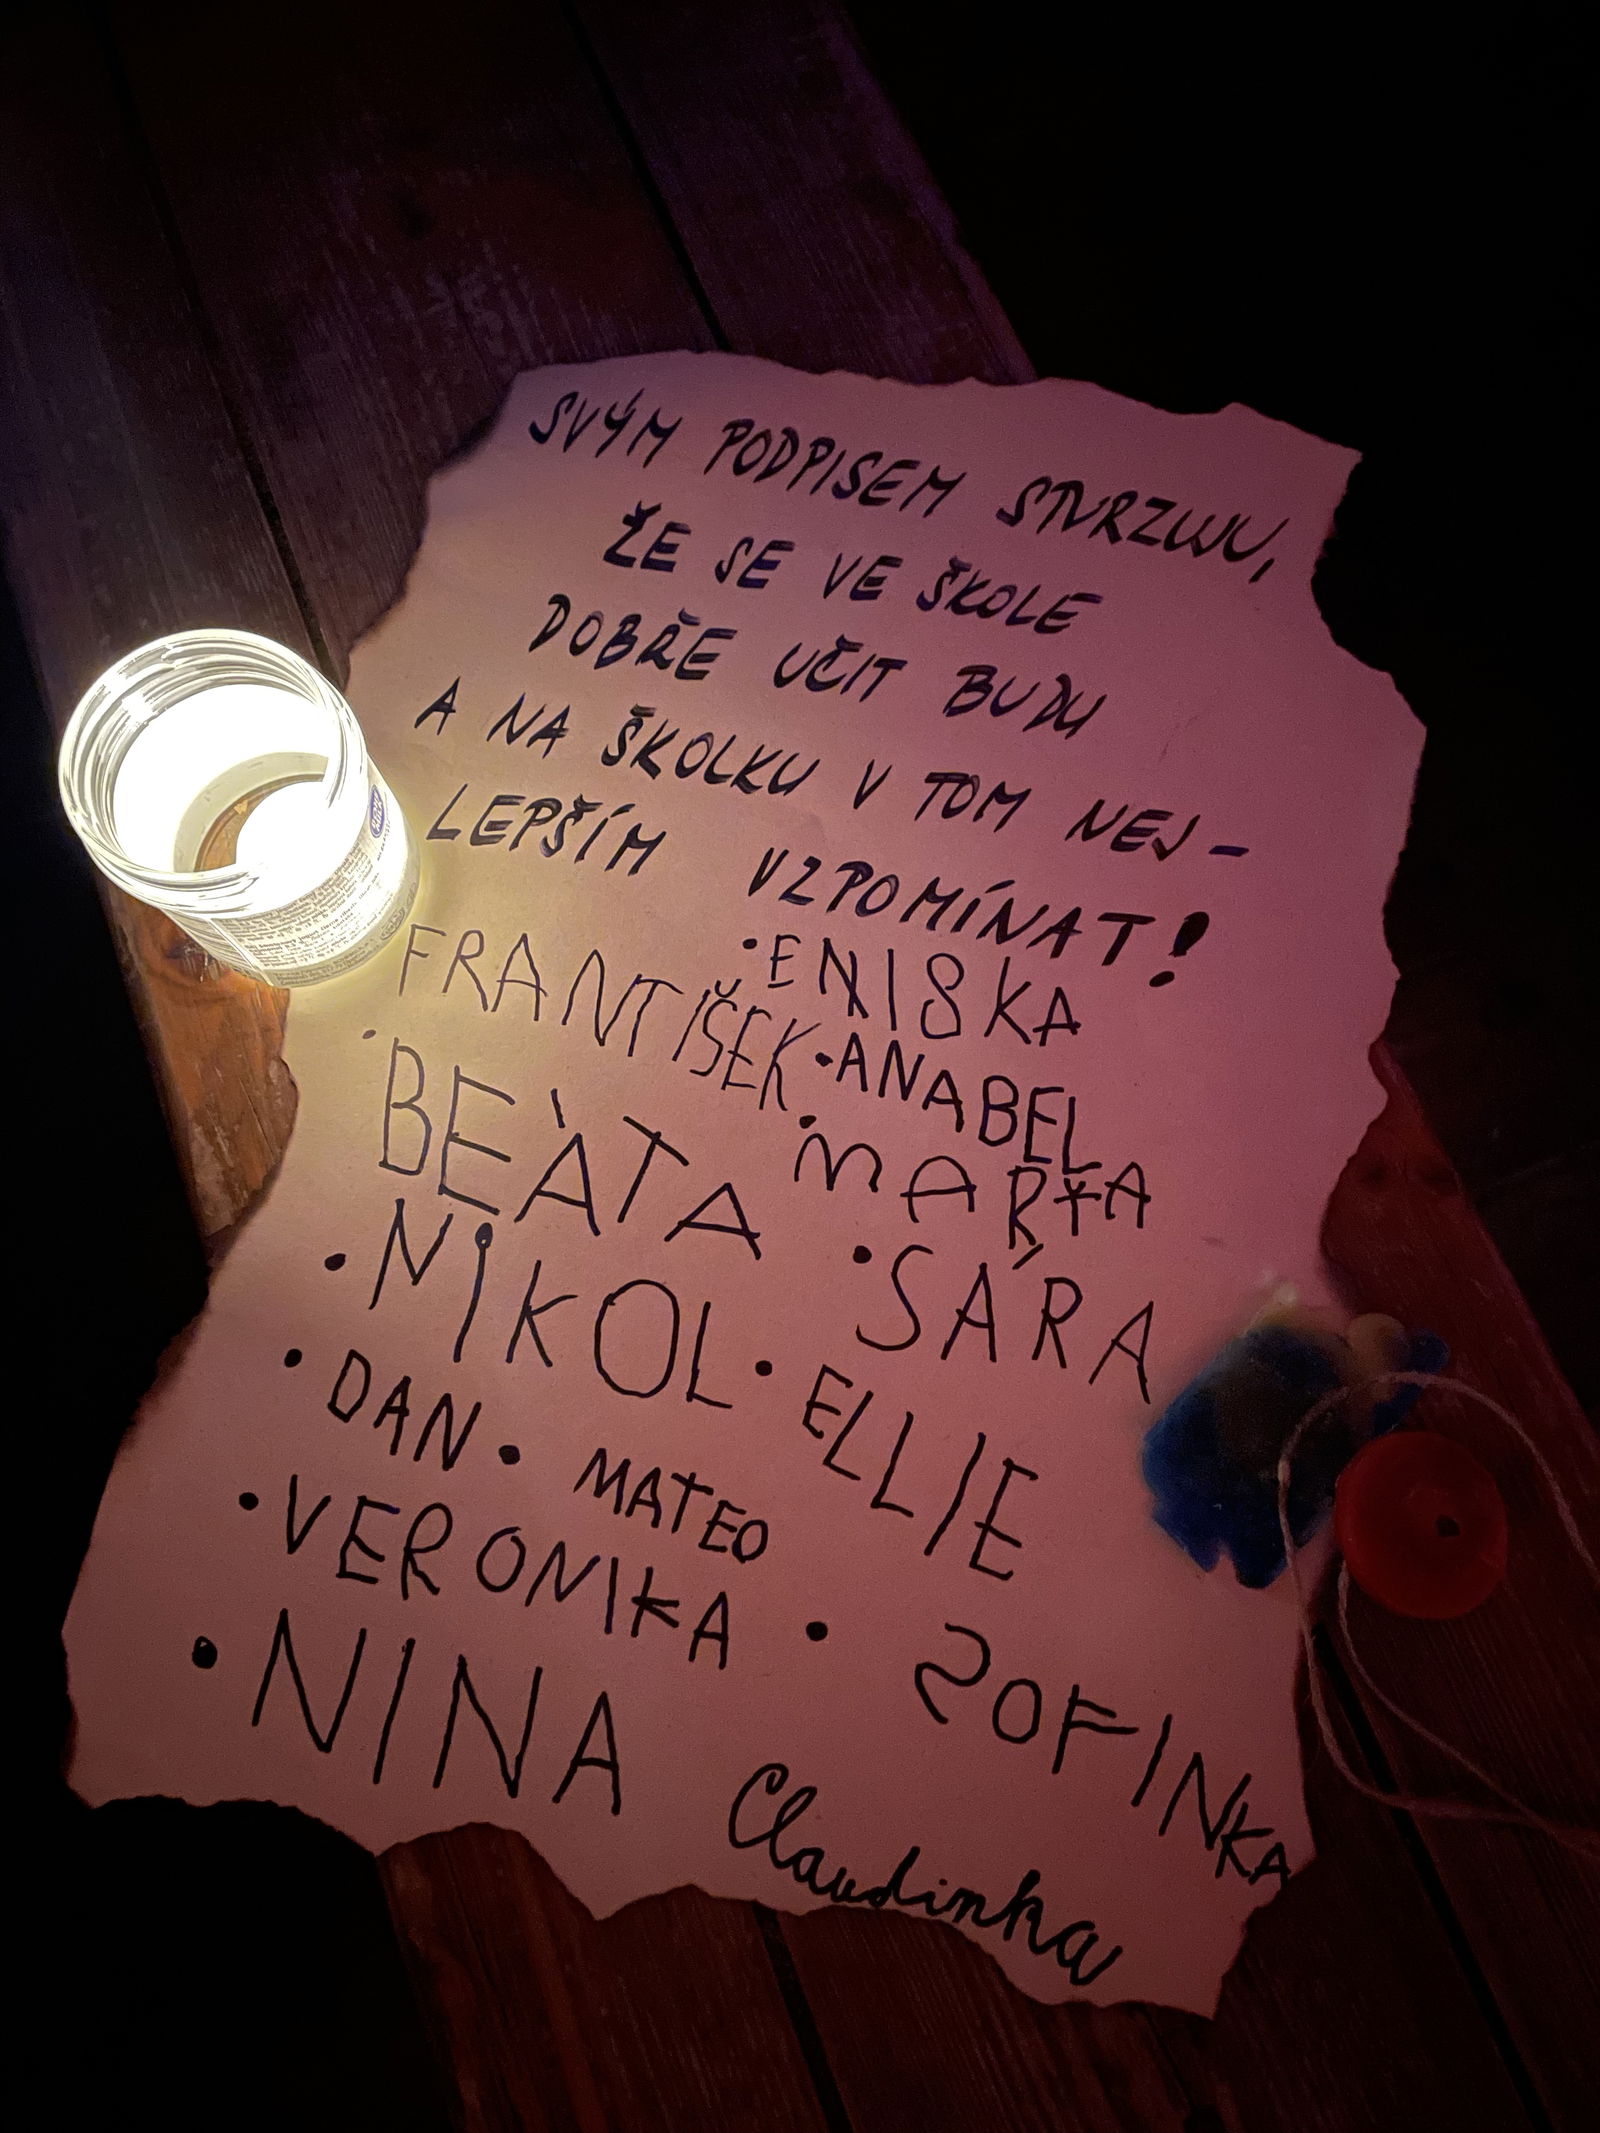 SVÝM PODPISEM STVRZUJU,
ŽE SE VE ŠKOLE
DOBŘE UČIT BUDU
A NA ŠKOLKU V TOM NEJ-
LEPŠÍM VZPOMÍNAT!
•ENISKA
FRANTIŠEK
•ANABELA
•BEÁTA
•MARTA
•NIKOL
•SÁRA
•DAN
•ELLIE
•MATEO
•VERONIKA
•SOFINKA
•NINA
Claudinka